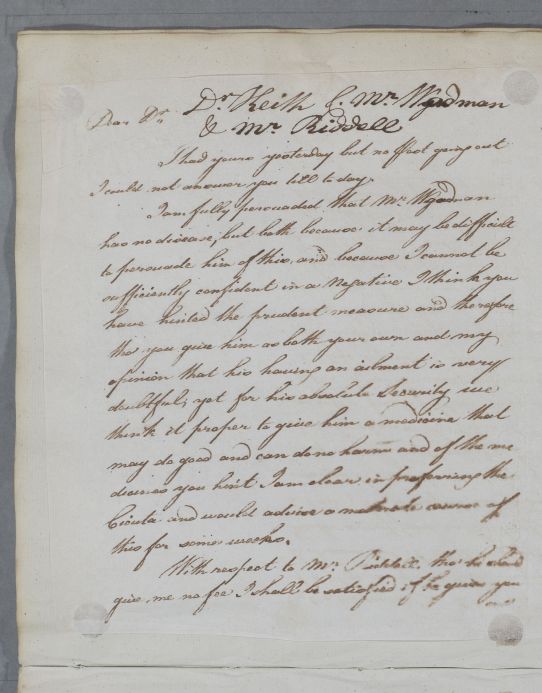 Dr. Keith C. Mr. Wydman
Dear Dr. & Mr. Riddell
I had yours yesterday but no post going out
I could not answer you till to day.
I am fully persuaded that Mr. Wydman
has no disease, but both because it may be difficult
to persuade him of this, and because I cannot be
sufficiently confident in a Negative I think you
have hinted the prudent measure and therefore
tho you give him as both your own and my
opinion that his having an ailment is very
doubtful; yet for his absolute Security we
think it proper to give him a medicine that
may do good and can do no harm and of the me
dicines you hint I am clear in preferring the
Cicuta and would advise a course of
this for some weeks.
With respect to Mr. Riddell, tho he should
give me no fee I shall be satisfied if he gives you